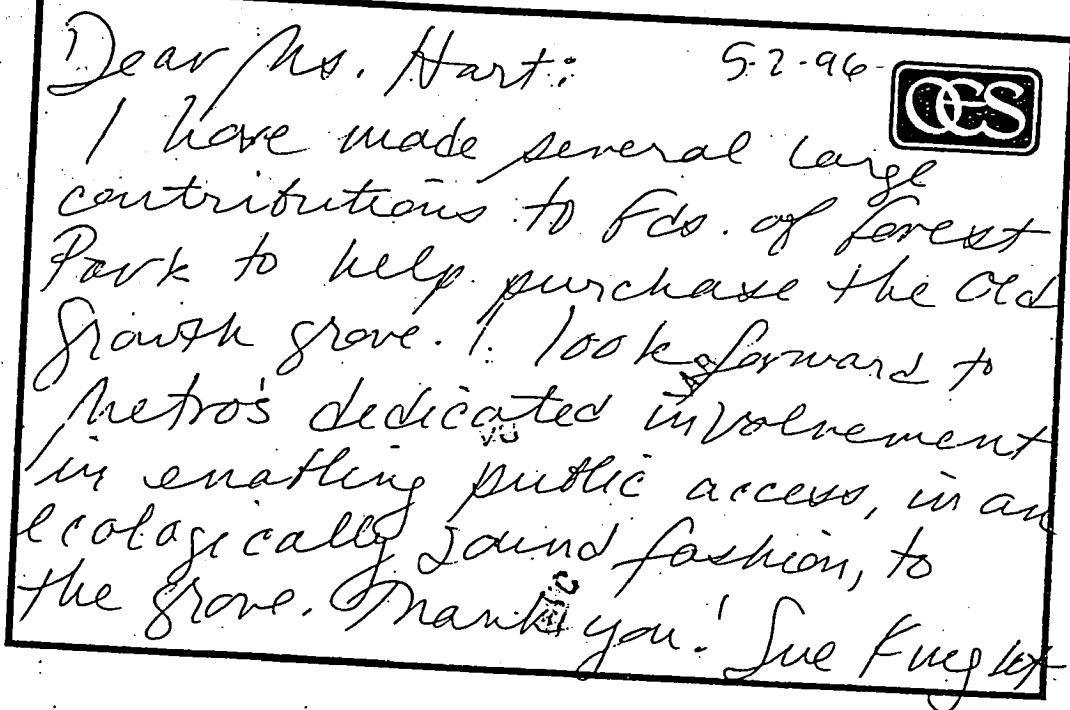 Dear Ms. Hart: 5-2-96
OES
I have made several large
contributions to Fds. of Forest
Park to help purchase the Old
Growth grove. I look forward to
Metro's dedicated involvement
in enabling public access, in an
ecologically sound fashion, to
the grove. Thank you! Sue